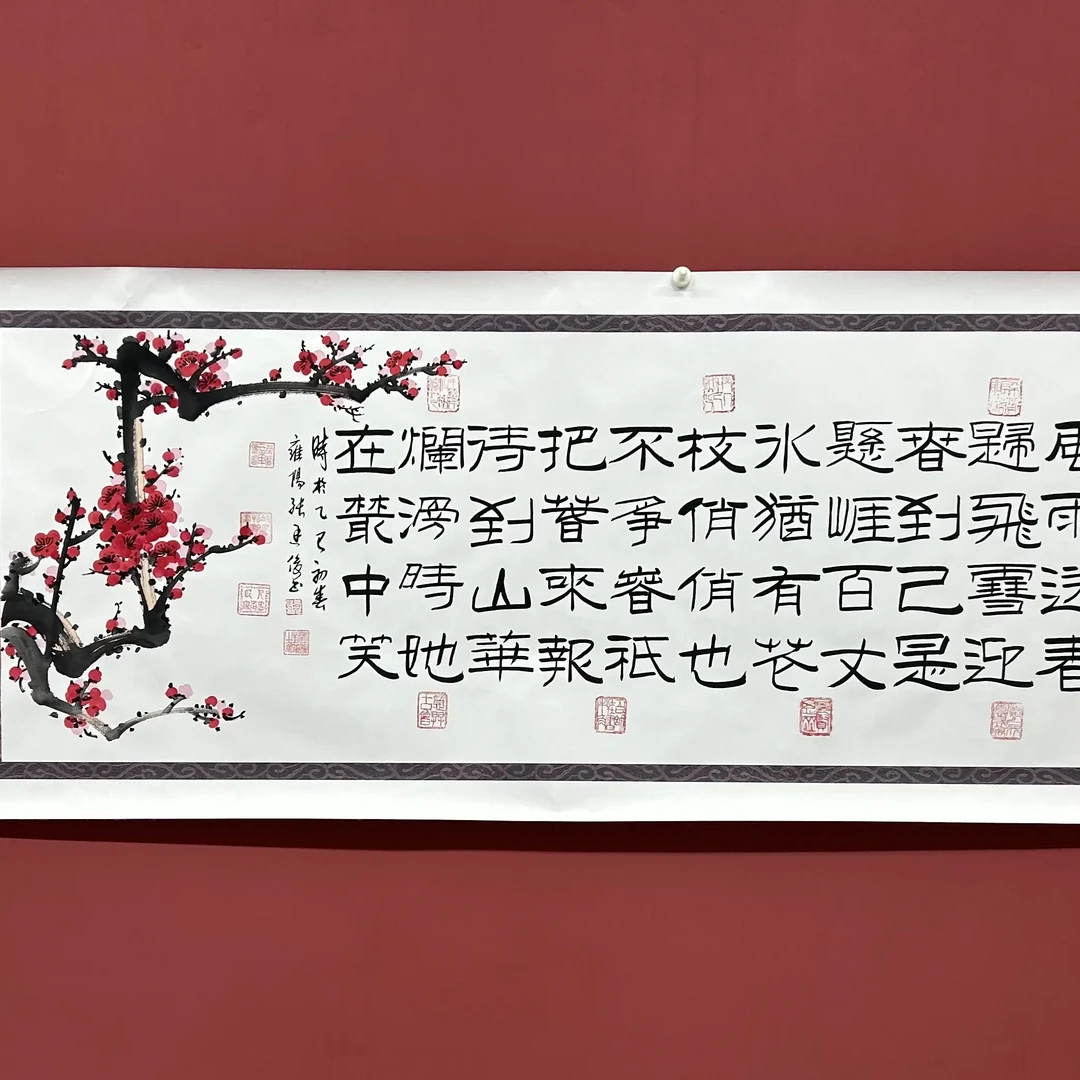 風雨送春
歸飛雪迎
春到已是
懸崖百丈
冰猶有花
枝俏俏也
不爭春祇
把春來報
待到山華
爛漫時她
在叢中笑
時於乙巳初春
雍陽張建俊書